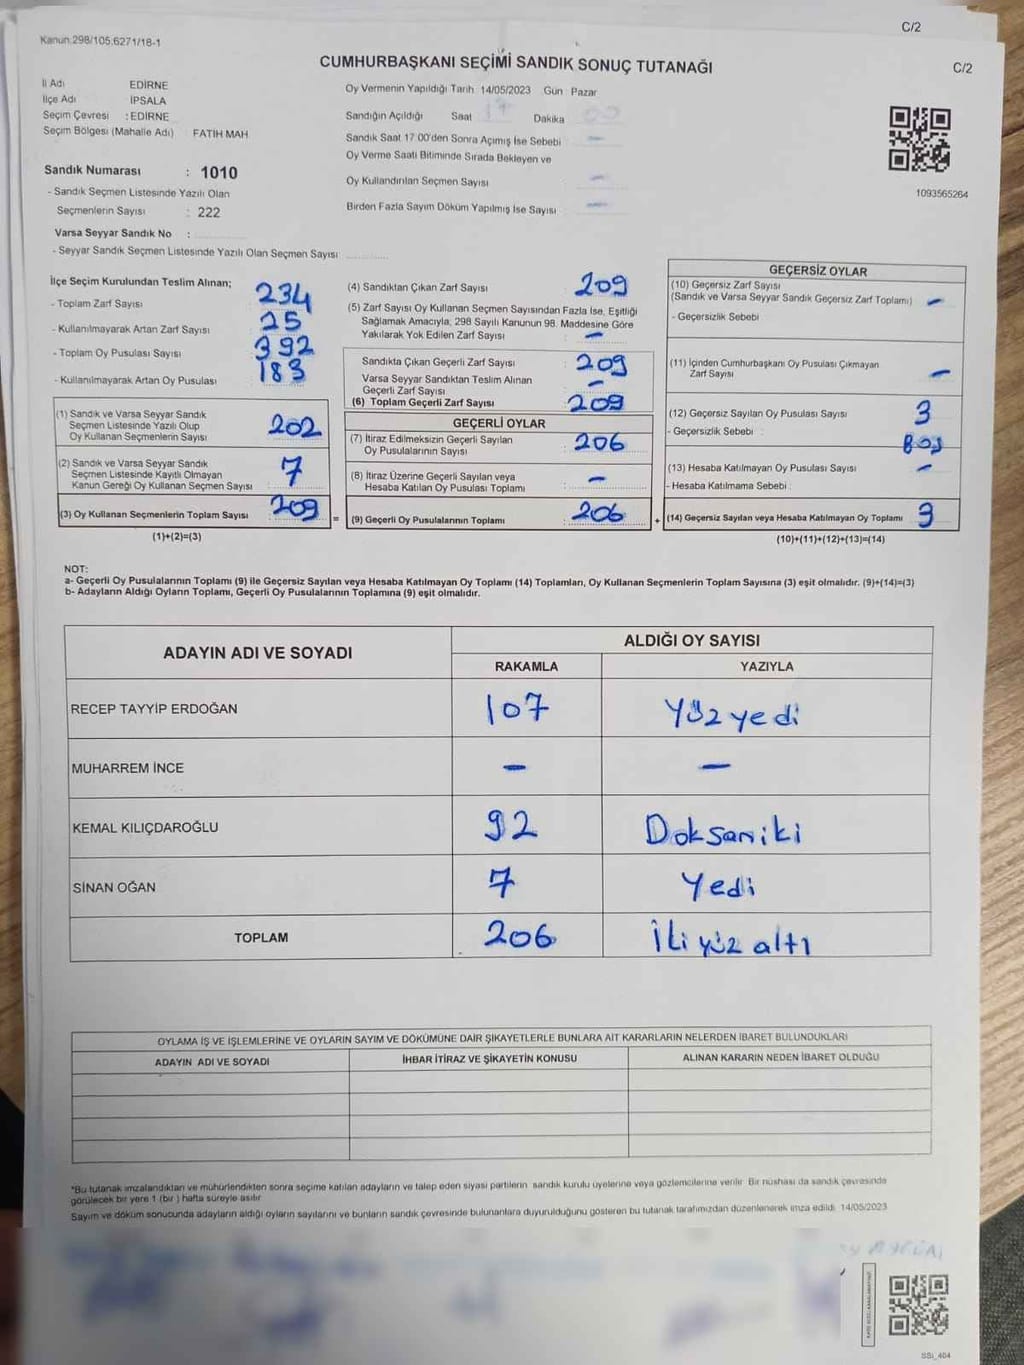 C/2
Kanun:298/105:6271/18-1
C/2
CUMHURBAŞKANI SEÇİMİ SANDIK SONUÇ TUTANAĞI
İl Adı EDİRNE
İlçe Adı İPSALA
Seçim Çevresi : EDİRNE
Seçim Bölgesi (Mahalle Adı) FATİH MAH
Sandık Numarası : 1010
- Sandık Seçmen Listesinde Yazılı Olan
Seçmenlerin Sayısı : 222
Varsa Seyyar Sandık No :
- Seyyar Sandık Seçmen Listesinde Yazılı Olan Seçmen Sayısı
Oy Vermenin Yapıldığı Tarih 14/05/2023 Gün Pazar
Sandığın Açıldığı Saat 17 Dakika 00
Sandık Saat 17 00'den Sonra Açımış İse Sebebi —
Oy Verme Saati Bitiminde Sırada Bekleyen ve
Oy Kullandırılan Seçmen Sayısı —
Birden Fazla Sayım Döküm Yapılmış İse Sayısı —
1093565264
İlçe Seçim Kurulundan Teslim Alınan;
- Toplam Zarf Sayısı 234
- Kullanılmayarak Artan Zarf Sayısı 25
- Toplam Oy Pusulası Sayısı 392
- Kullanılmayarak Artan Oy Pusulası 183
(1) Sandık ve Varsa Seyyar Sandık
Seçmen Listesinde Yazılı Olup
Oy Kullanan Seçmenlerin Sayısı 202
(2) Sandık ve Varsa Seyyar Sandık
Seçmen Listesinde Kayıtlı Olmayan
Kanun Gereği Oy Kullanan Seçmen Sayısı 7
(3) Oy Kullanan Seçmenlerin Toplam Sayısı 209
(1)+(2)=(3)
(4) Sandıktan Çıkan Zarf Sayısı 209
(5) Zarf Sayısı Oy Kullanan Seçmen Sayısından Fazla İse, Eşitliği
Sağlamak Amacıyla, 298 Sayılı Kanunun 98. Maddesine Göre
Yakılarak Yok Edilen Zarf Sayısı —
Sandıkta Çıkan Geçerli Zarf Sayısı 209
Varsa Seyyar Sandıktan Teslim Alınan
Geçerli Zarf Sayısı —
(6) Toplam Geçerli Zarf Sayısı 209
GEÇERLİ OYLAR
(7) İtiraz Edilmeksizin Geçerli Sayılan
Oy Pusulalarının Sayısı 206
(8) İtiraz Üzerine Geçerli Sayılan veya
Hesaba Katılan Oy Pusulası Toplamı —
= (9) Geçerli Oy Pusulalarının Toplamı 206
GEÇERSİZ OYLAR
(10) Geçersiz Zarf Sayısı
(Sandık ve Varsa Seyyar Sandık Geçersiz Zarf Toplamı) —
- Geçersizlik Sebebi
(11) İçinden Cumhurbaşkanı Oy Pusulası Çıkmayan
Zarf Sayısı —
(12) Geçersiz Sayılan Oy Pusulası Sayısı 3
- Geçersizlik Sebebi :
(13) Hesaba Katılmayan Oy Pusulası Sayısı —
- Hesaba Katılmama Sebebi :
+ (14) Geçersiz Sayılan veya Hesaba Katılmayan Oy Toplamı 3
(10)+(11)+(12)+(13)=(14)
NOT:
a- Geçerli Oy Pusulalarının Toplamı (9) ile Geçersiz Sayılan veya Hesaba Katılmayan Oy Toplamı (14) Toplamları, Oy Kullanan Seçmenlerin Toplam Sayısına (3) eşit olmalıdır. (9)+(14)=(3)
b- Adayların Aldığı Oyların Toplamı, Geçerli Oy Pusulalarının Toplamına (9) eşit olmalıdır.
ADAYIN ADI VE SOYADI ALDIĞI OY SAYISI
RAKAMLA YAZIYLA
RECEP TAYYİP ERDOĞAN 107 Yüz yedi
MUHARREM İNCE — —
KEMAL KILIÇDAROĞLU 92 Doksaniki
SİNAN OĞAN 7 Yedi
TOPLAM 206 İki yüz altı
OYLAMA İŞ VE İŞLEMLERİNE VE OYLARIN SAYIM VE DÖKÜMÜNE DAİR ŞİKAYETLERLE BUNLARA AİT KARARLARIN NELERDEN İBARET BULUNDUKLARI
ADAYIN ADI VE SOYADI İHBAR İTİRAZ VE ŞİKAYETİN KONUSU ALINAN KARARIN NEDEN İBARET OLDUĞU
*Bu tutanak imzalandıktan ve mühürlendikten sonra seçime katılan adayların ve talep eden siyasi partilerin sandık kurulu üyelerine veya gözlemcilerine verilir. Bir nüshası da sandık çevresinde
görülecek bir yere 1 (bir ) hafta süreyle asılır
Sayım ve döküm sonucunda adayların aldığı oyların sayılarını ve bunların sandık çevresinde bulunanlara duyurulduğunu gösteren bu tutanak tarafımızdan düzenlenerek imza edildi. 14/05/2023
SSI_404